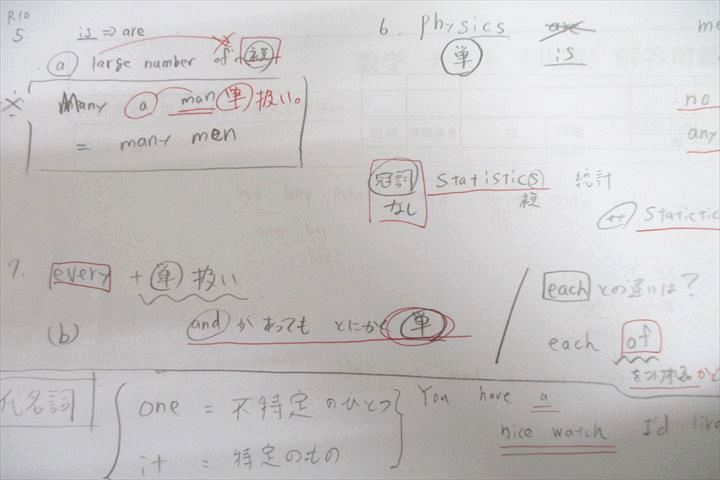 R10
5
is ⇒ are
(a) large number of + 複
※ Many a man 単扱い。
= many men
6. physics are
単 is
me
no
any
冠詞 なし statistics 統計
複
Statictic
7. every + 単扱い
(b) and があっても とにかく 単
each との違いは?
each of
をつけれるかど
代名詞
one = 不特定のひとつ
it = 特定のもの
You have a
nice watch I'd like